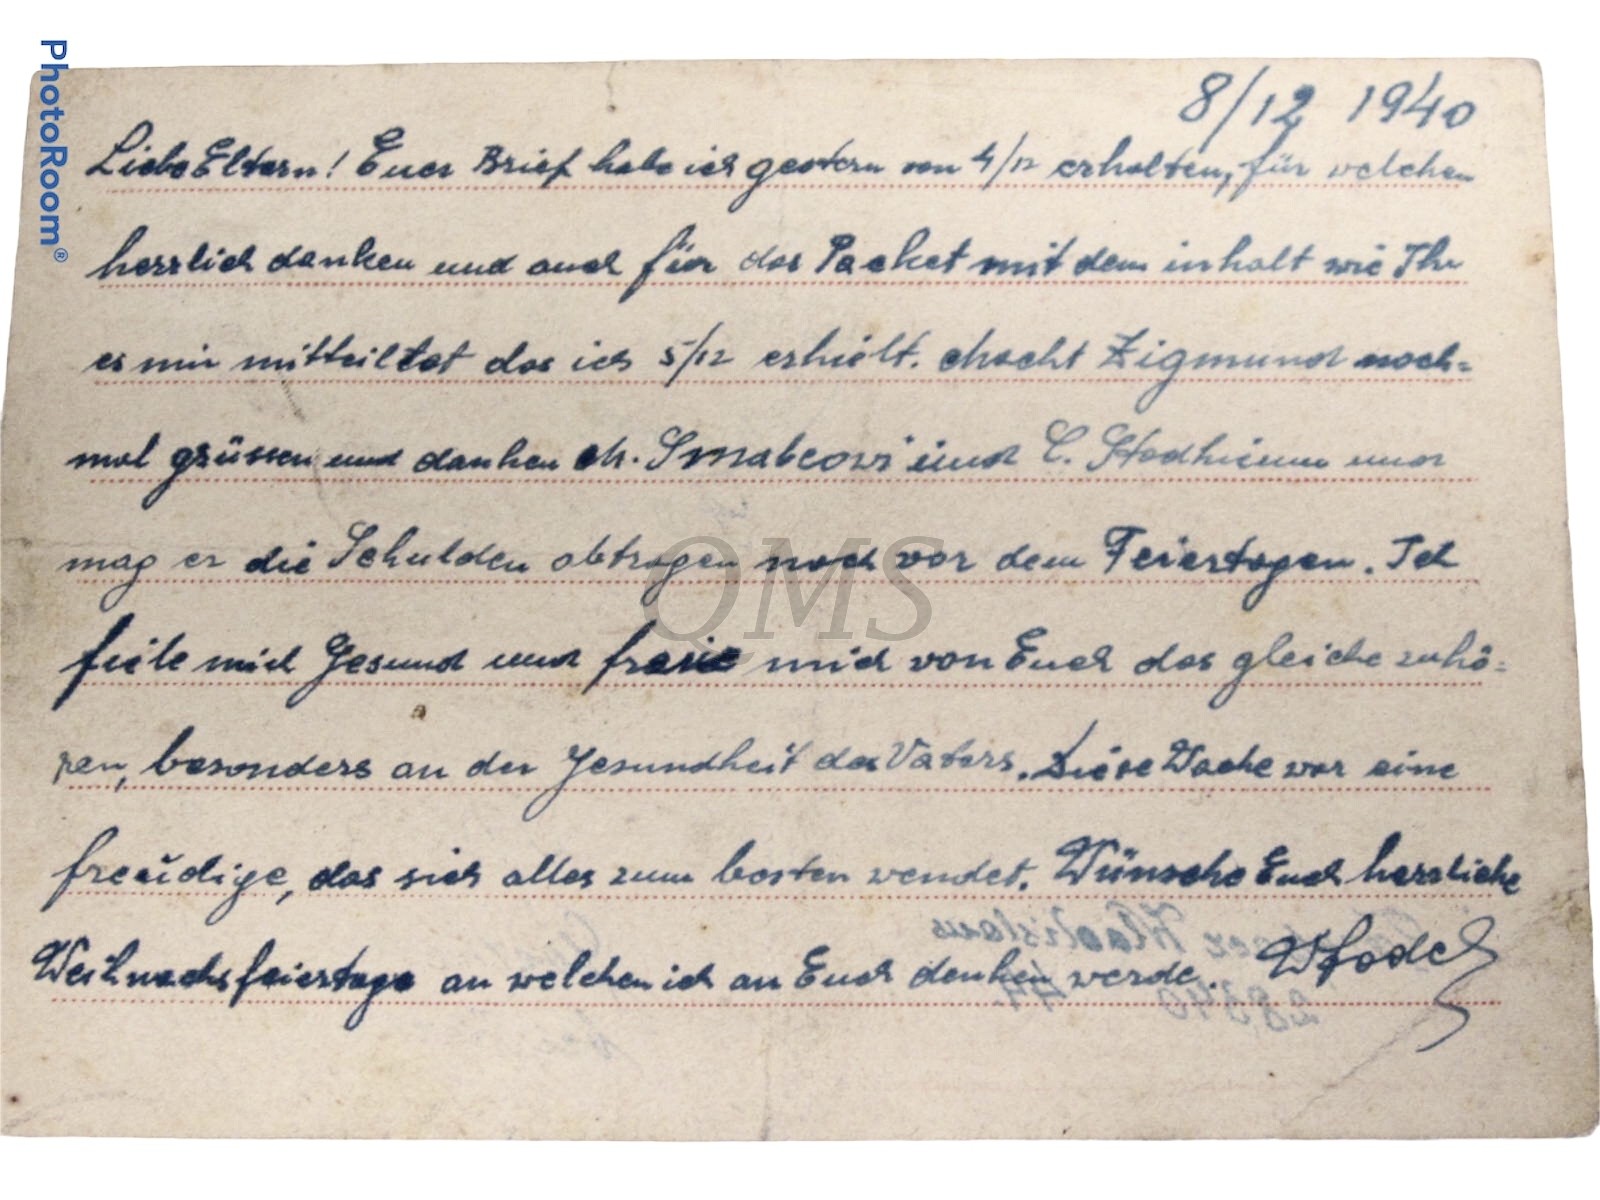 PhotoRoom®
8/12 1940
Liebe Eltern! Euer Brief habe ich gestern von 4/12 erhalten, für welchen
herzlich danken und auch für das Packet mit dem inhalt wie Ihr
es mir mitteiltet das ich 5/12 erhielt. Macht Zigmund noch=
mal grüssen und danken M. Smalcowi und C. und
mag er die Schulden abtragen noch vor dem Feiertagen. Ich
fiele mich Gesund und freie mich von Euch das gleiche zuhö=
ren, besonders an der Gesundheit des Vaters. Diese Woche war eine
freudige, das sich alles zum besten wendet. Wünsche Euch herzliche
Weihnachsfeiertage an welchen ich an Euch denken werde. Wladek
QMS
Wladislaus